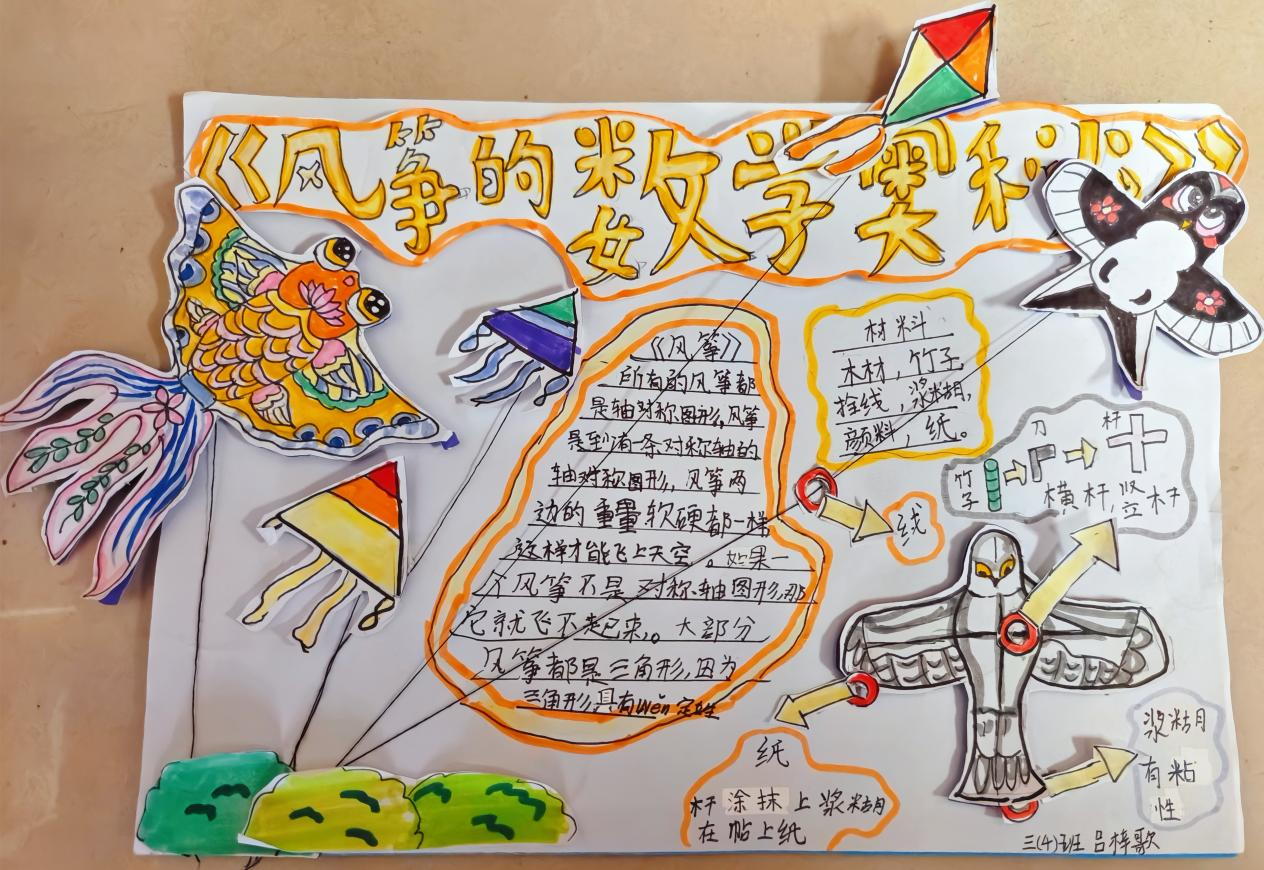 《风筝的数学奥秘》
《风筝》
所有的风筝都
是轴对称图形。风筝
是到有一条对称轴的
轴对称图形，风筝两
边的重量软硬都一样
这样才能飞上天空。如果一
个风筝不是对称轴图形，那
它就飞不起来。大部分
风筝都是三角形，因为
三角形具有wen定性
材料
木材，竹子，
拴线，浆糊，
颜料，纸。
竹子
刀
杆
横杆，竖杆
线
纸
杆涂抹上浆糊
在帖上纸
浆糊
有粘
性
三(4)班 吕梓歌